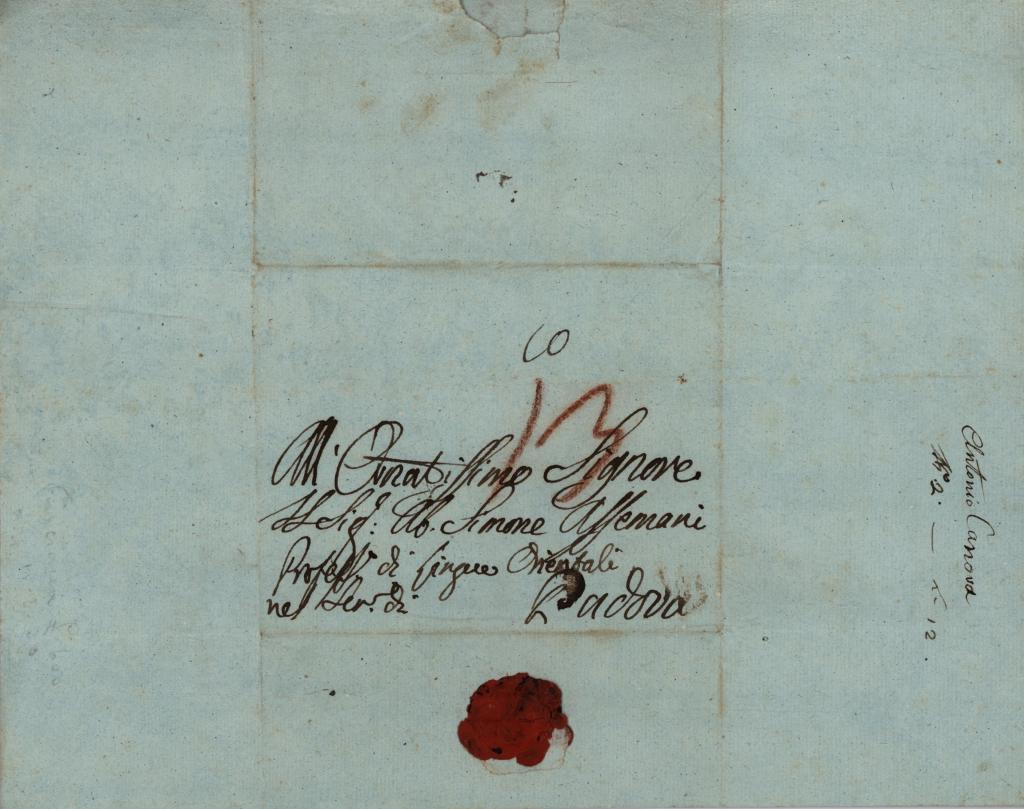 10
13
All' Ornatissimo Signore
Il Sigr. Ab. Simone Assemani
Profess. di Lingue Orientali
nel Sem. di Padova
Antonio Canova
No 2. — L. 12